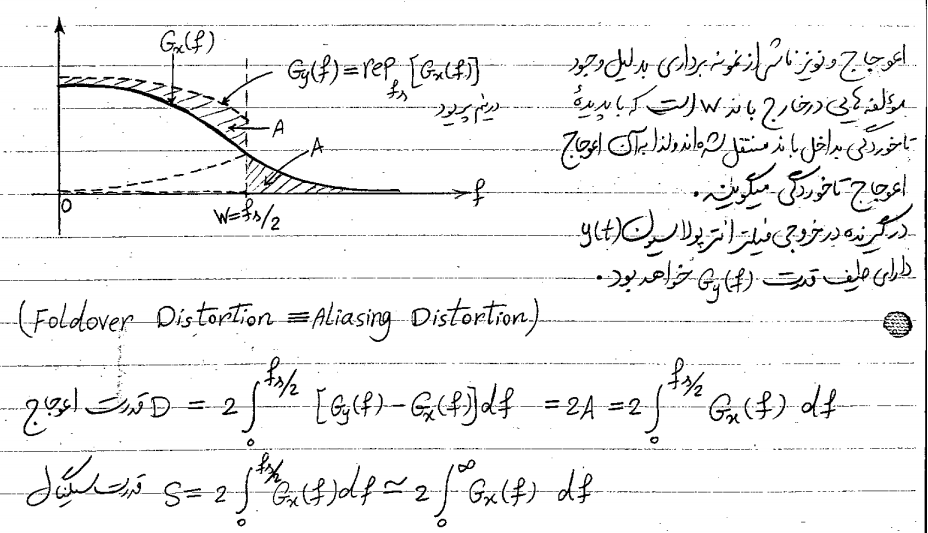 Gx(f)
Gy(f) = rep_fs [Gx(f)]
در نیم پریود
A
A
0
W=fs/2
f
اعوجاج و نویز ناشی از نمونه برداری بدلیل وجود
مؤلفه هایی در خارج باند W است که با پدیدهٔ
تاخوردگی بداخل باند منتقل شده اند ولذا به آن اعوجاج
اعوجاج تاخوردگی میگویند.
در گیرنده در خروجی فیلتر انترپولاسیون y(t)
دارای طیف قدرت Gy(f) خواهد بود.
(Foldover Distortion ≡ Aliasing Distortion)
قدرت اعوجاج D = 2∫₀^{fs/2} [Gy(f) − Gx(f)]df = 2A = 2∫₀^{fs/2} Gx(f) df
قدرت سیگنال S = 2∫₀^{fs/2} Gx(f)df ≃ 2∫₀^∞ Gx(f) df